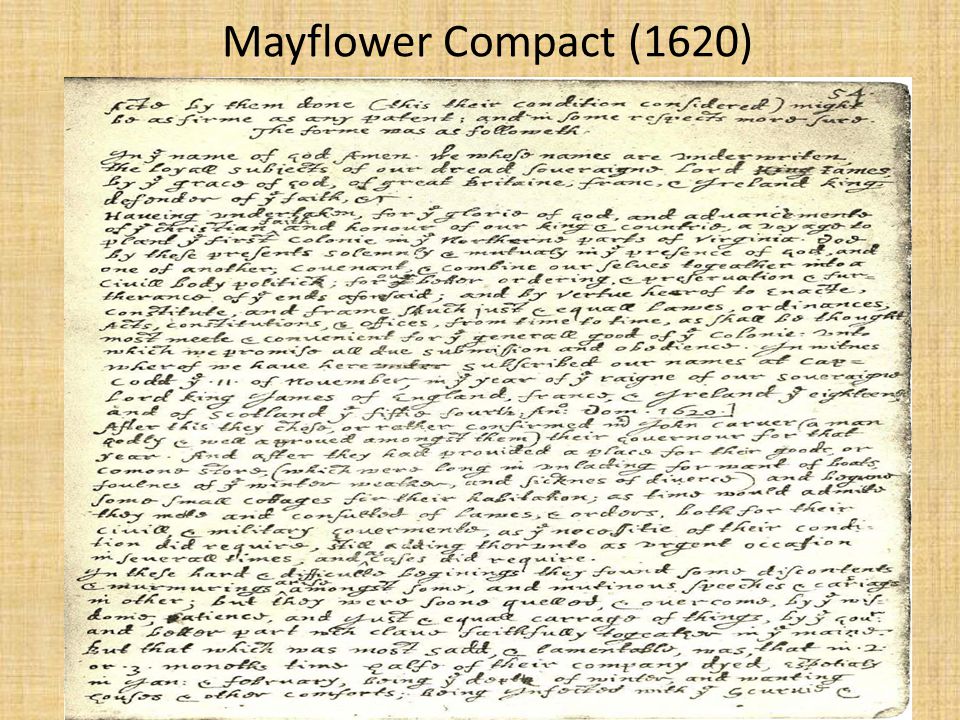 Mayflower Compact (1620)
54
Acts by them done (this their condition considered) might
be as firme as any patent; and in some respects more sure.
The forme was as followeth.
In yᵉ name of God Amen. We whose names are underwriten,
the loyall subjects of our dread soveraigne Lord King James
by yᵉ grace of God, of great Britaine, franc, & Ireland king,
defender of yᵉ faith, &c
Haveing undertaken, for yᵉ glorie of God, and advancemente
of yᵉ christian faith and honour of our king & countrie, a voyage to
plant yᵉ first colonie in yᵉ Northerne parts of Virginia. Doe
by these presents solemnly & mutualy in yᵉ presence of God, and
one of another, covenant, & combine our selves togeather into a
Civill body politick; for our better ordering, & preservation & fur=
therance of yᵉ ends aforesaid; and by vertue hearof to enacte,
constitute, and frame shuch just & equall lawes, ordinances,
Acts, constitutions, & offices, from time to time, as shall be thought
most meete & convenient for yᵉ generall good of yᵉ Colonie: unto
which we promise all due submission and obedience. In witnes
wherof we have hereunder subscribed our names at Cap=
Codd yᵉ .11. of November, in yᵉ year of yᵉ raigne of our soveraigne
Lord king James of England, france, & Ireland yᵉ eighteenth
and of Scotland yᵉ fiftie fourth. Anᵒ: Dom. 1620.]
After this they chose, or rather confirmed mʳ John Carver (a man
godly & well approved amongst them) their Governour for that
year. And after they had provided a place for their goods, or
comone store, (which were long in unlading for want of boats,
foulnes of yᵉ winter weather, and sicknes of diverce) and begune
some small cottages for their habitation; as time would admitte
they mette and consulted of lawes, & orders, both for their
civill & military Govermente, as yᵉ necessitie of their condi=
tion did require, still adding therunto as urgent occasion
in severall times, and as cases did require.
In these hard & difficulte beginings they found some discontents
& murmurings arise amongst some, and mutinous speeches & cariags
in other; but they were soone quelled, & overcome, by yᵉ wis=
dome, patience, and just & equall carrage of things, by yᵉ Govʳ
and better part wᶜʰ clave faithfully togeather in yᵉ maine.
But that which was most sadd, & lamentable, was, that in .2.
or .3. moneths time halfe of their company dyed, espetialy
in Jan: & february, being yᵉ depth of winter, and wanting
houses & other comforts; being Infected with yᵉ Scurvie &